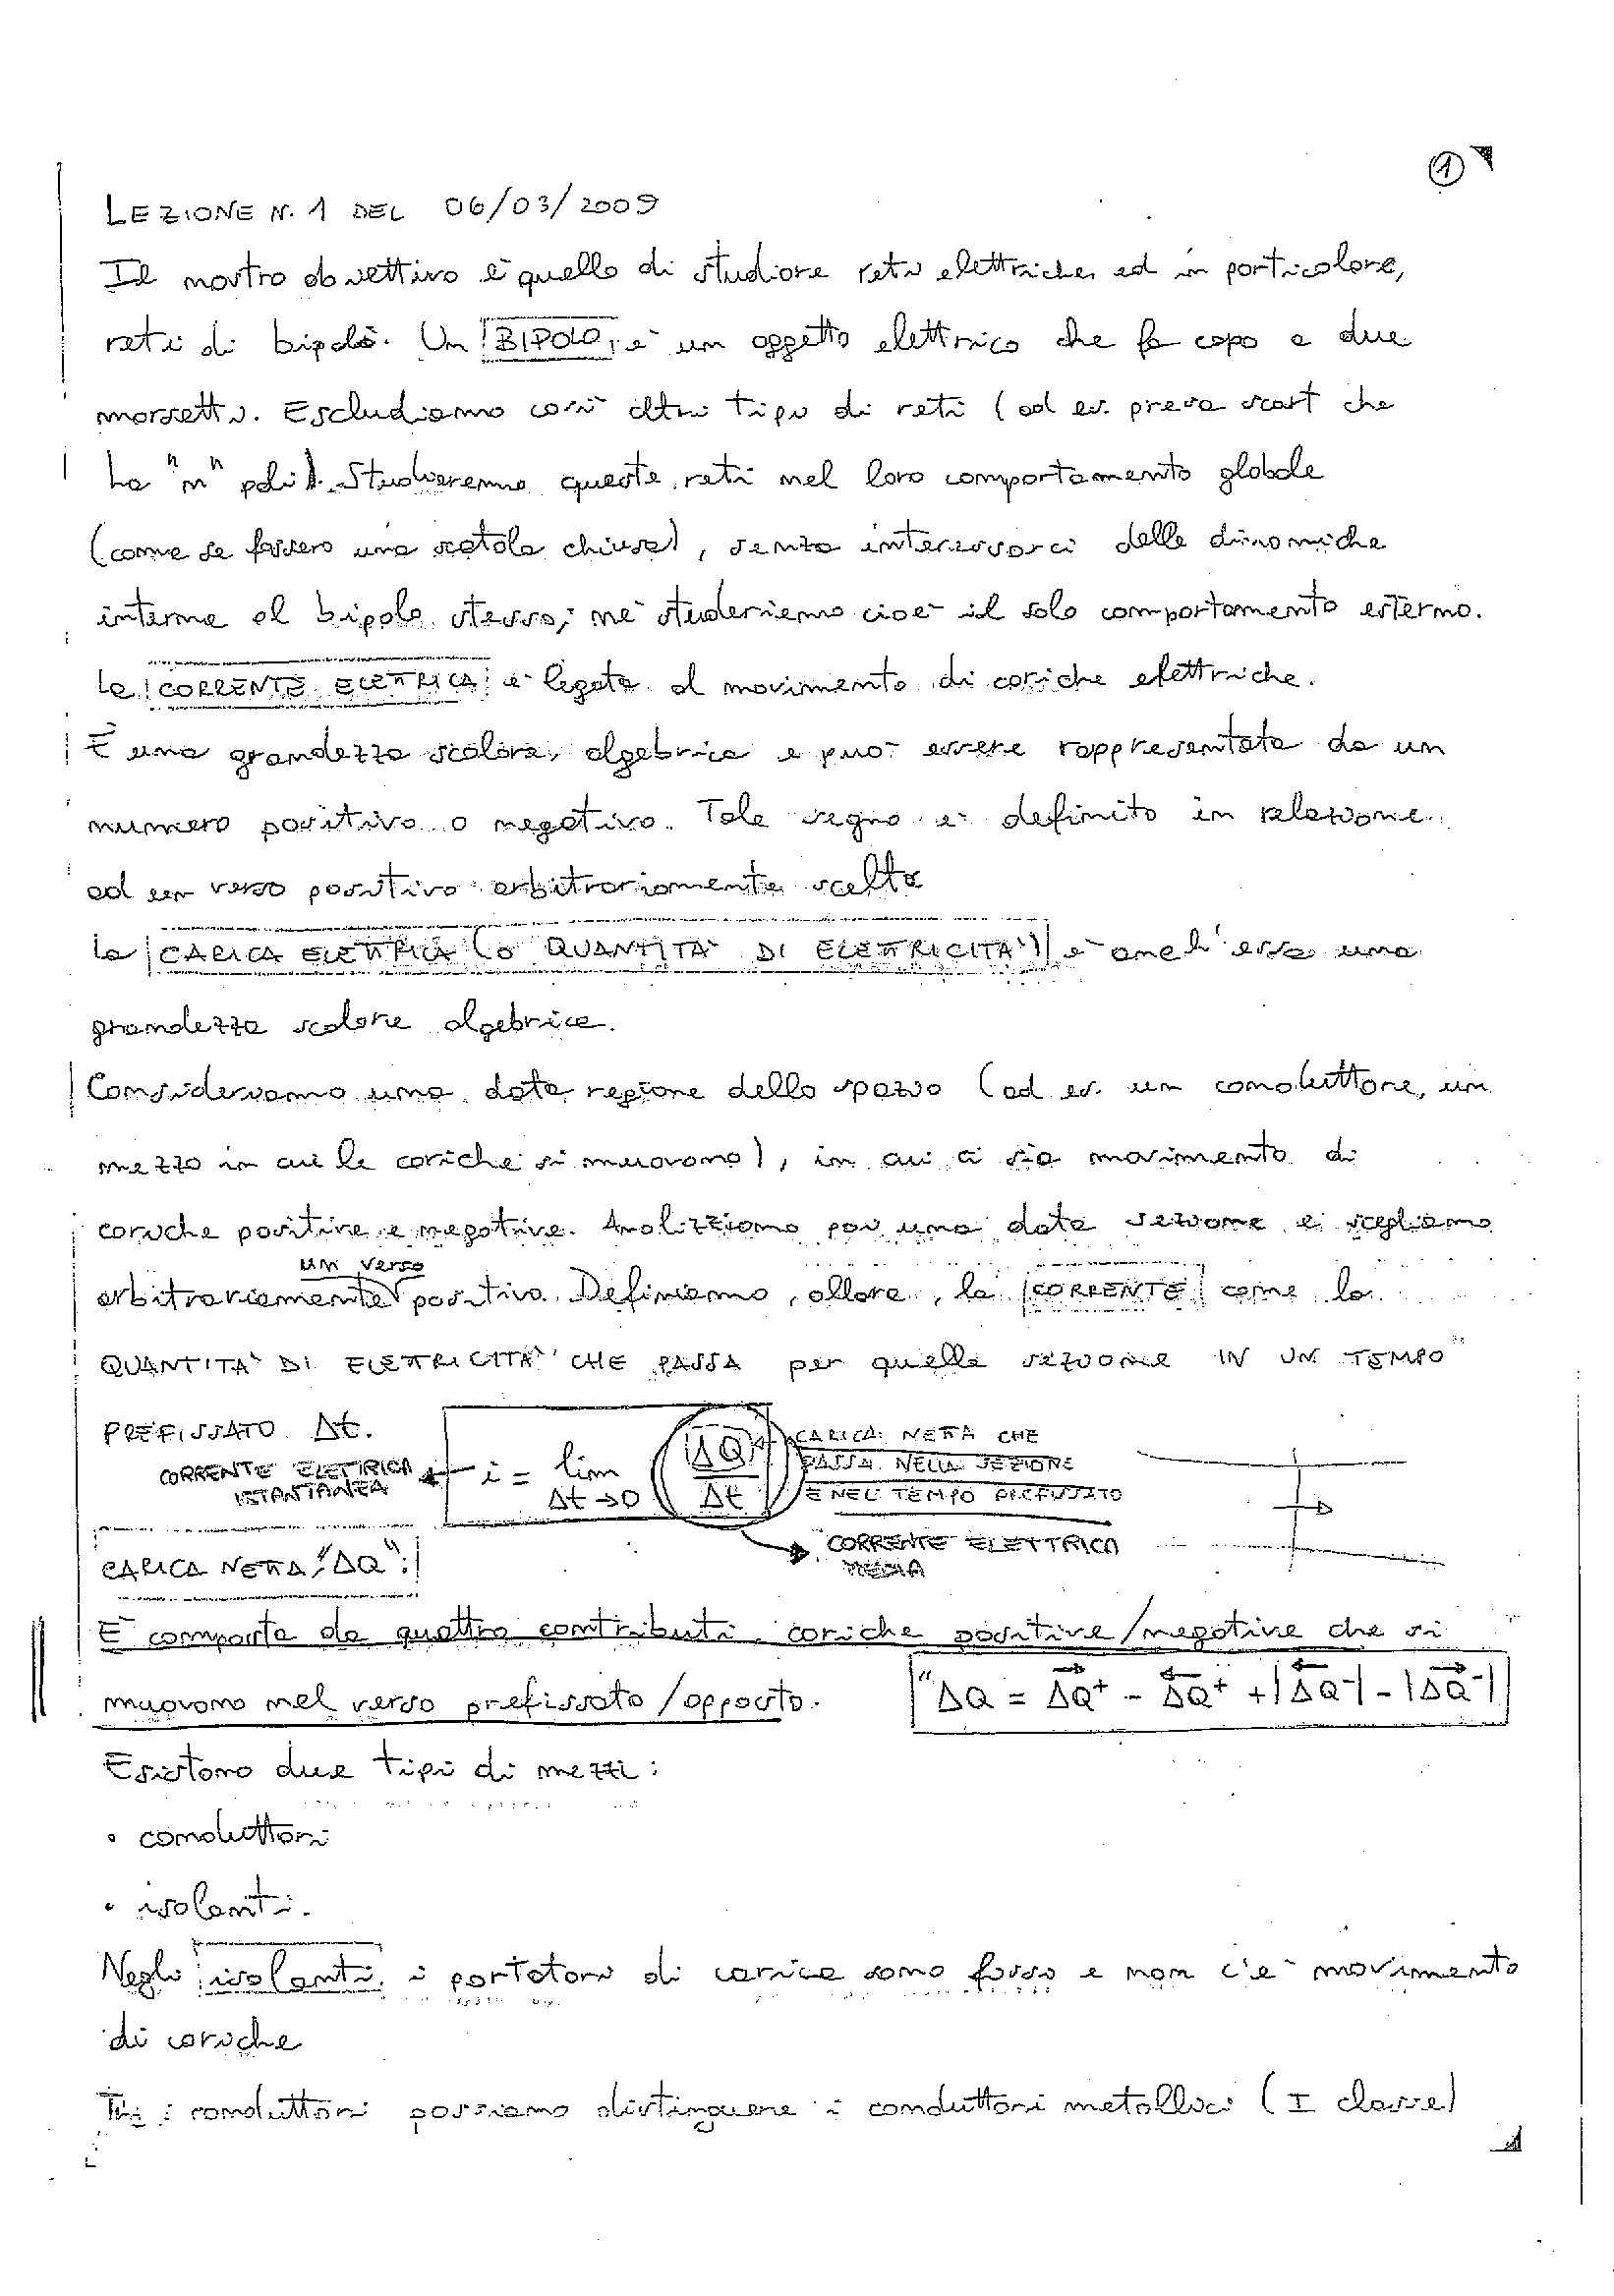 ①
LEZIONE N. 1 DEL 06/03/2009
Il nostro obiettivo è quello di studiare reti elettriche, ed in particolare,
reti di bipoli. Un BIPOLO, è un oggetto elettrico che fa capo a due
morsetti. Escludiamo così altri tipi di reti (ad es. presa scart che
ha "n" poli). Studieremo queste reti nel loro comportamento globale
(come se fossero una scatola chiusa), senza interessarci delle dinamiche
interne al bipolo stesso; ne studieremo cioè il solo comportamento esterno.
La CORRENTE ELETTRICA è legata al movimento di cariche elettriche.
È una grandezza scalare, algebrica e può essere rappresentata da un
numero positivo o negativo. Tale segno è definito in relazione
ad un verso positivo arbitrariamente scelto
La CARICA ELETTRICA (O QUANTITA' DI ELETTRICITA') è anch'essa una
grandezza scalare algebrica.
Consideriamo una data regione dello spazio (ad es. un conduttore, un
mezzo in cui le cariche si muovono), in cui ci sia movimento di
cariche positive e negative. Analizziamo poi una data sezione e scegliamo
un verso
arbitrariamente positivo. Definiamo, allora, la CORRENTE come la
QUANTITA' DI ELETTRICITA' CHE PASSA per quella sezione IN UN TEMPO
PREFISSATO Δt.
CORRENTE ELETTRICA
ISTANTANEA
i = lim Δt→0 ΔQ/Δt
CARICA NETTA CHE
PASSA NELLA SEZIONE
E NEL TEMPO PREFISSATO
CORRENTE ELETTRICA
MEDIA
CARICA NETTA "ΔQ":
È composta da quattro contributi, cariche positive/negative che si
muovono nel verso prefissato/opposto.
"ΔQ = →ΔQ⁺ - ←ΔQ⁺ + |←ΔQ⁻| - |→ΔQ⁻|
Esistono due tipi di mezzi:
• conduttori
• isolanti.
Negli isolanti, i portatori di carica sono fissi e non c'è movimento
di cariche
Tra i conduttori possiamo distinguere i conduttori metallici (I classe)